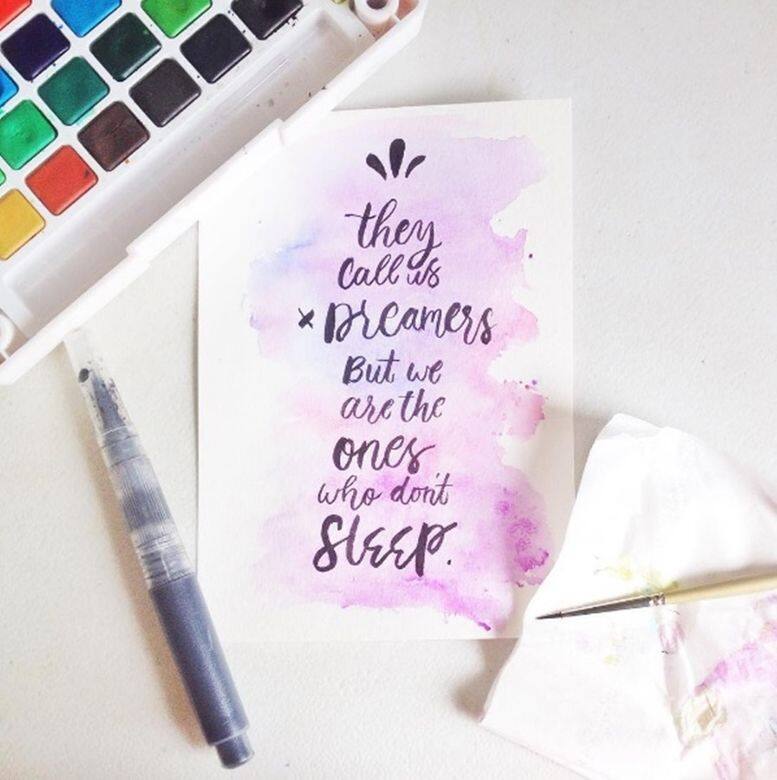 they
call us
x Dreamers
But we
are the
ones
who don't
SLEEP.